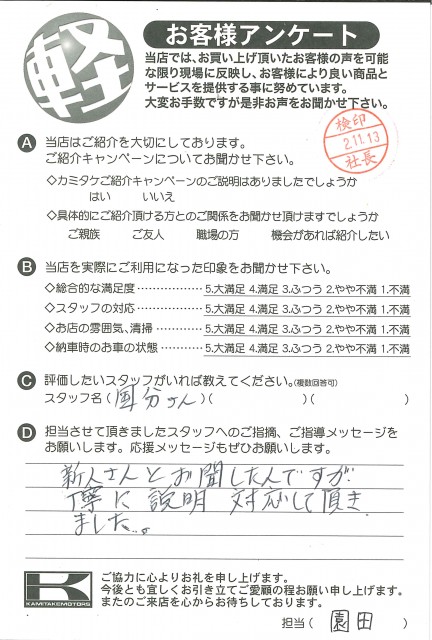 軽
お客様アンケート
当店では、お買い上げ頂いたお客様の声を可能
な限り現場に反映し、お客様により良い商品と
サービスを提供する事に努めています。
大変お手数ですが是非お声をお聞かせ下さい。
検印
2.11.13
社長
A 当店はご紹介を大切にしております。
ご紹介キャンペーンについてお聞かせ下さい。
◇カミタケご紹介キャンペーンのご説明はありましたでしょうか
はい いいえ
◇具体的にご紹介頂ける方とのご関係をお聞かせ頂けますでしょうか
ご親族 ご友人 職場の方 機会があれば紹介したい
B 当店を実際にご利用になった印象をお聞かせ下さい。
◇総合的な満足度 ‥‥‥‥‥ 5.大満足 4.満足 3.ふつう 2.やや不満 1.不満
◇スタッフの対応 ‥‥‥‥‥ 5.大満足 4.満足 3.ふつう 2.やや不満 1.不満
◇お店の雰囲気、清掃 ‥‥‥ 5.大満足 4.満足 3.ふつう 2.やや不満 1.不満
◇納車時のお車の状態 ‥‥‥ 5.大満足 4.満足 3.ふつう 2.やや不満 1.不満
C 評価したいスタッフがいれば教えてください。(複数回答可)
スタッフ名 ( 国分さん )( )( )
D 担当させて頂きましたスタッフへのご指摘、ご指導メッセージを
お願いします。応援メッセージもぜひお願いします。
新人さんとお聞したんですが
丁寧に説明 対応して頂き
ました。
K
KAMITAKEMOTORS
ご協力に心よりお礼を申し上げます。
今後とも宜しくお引き立てご愛顧の程お願い申し上げます。
またのご来店を心からお待ちしております。
担当 ( 園田 )